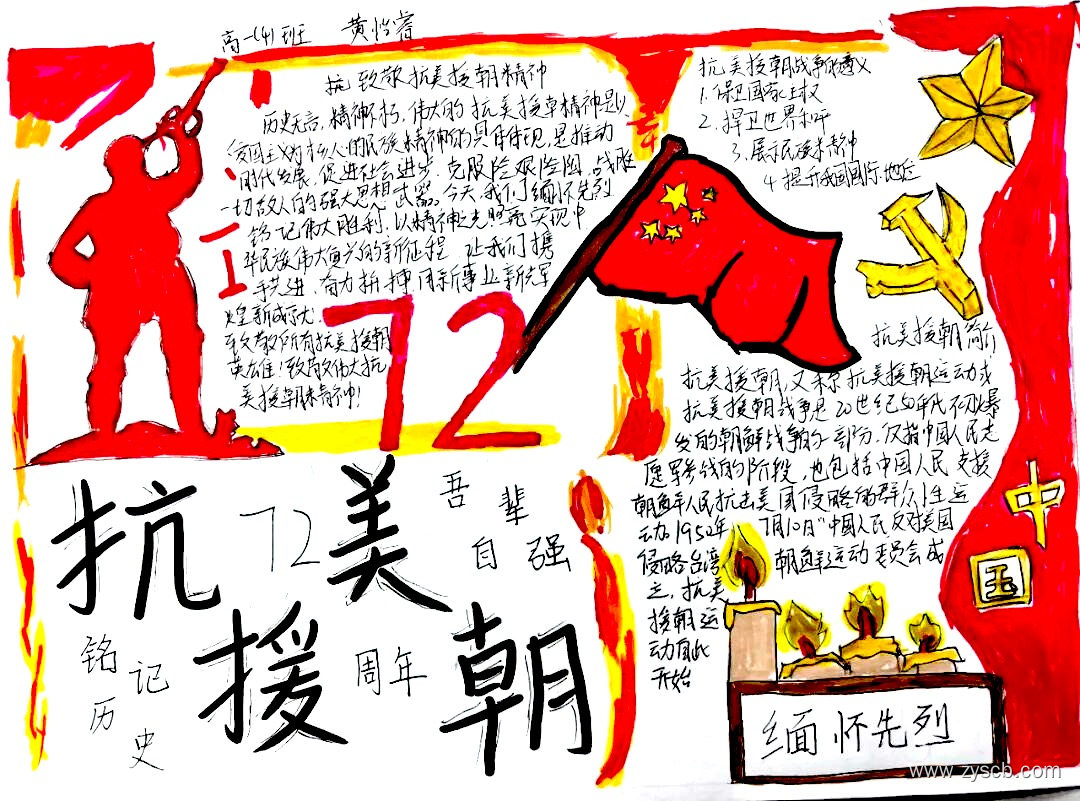 高一(4)班 黄怡睿
抗 致敬抗美援朝精神
历史无言,精神不朽,伟大的抗美援朝精神是以
爱国主义为核心的民族精神的具体体现,是推动
时代发展,促进社会进步,克服险艰险阻,战胜
一切敌人的强大思想武器。今天,我们缅怀先烈
铭记伟大胜利,以精神之光照亮实现中
华民族伟大复兴的新征程 让我们携
手共进,奋力拼搏 用新事业新
煌新成就.
致敬所有抗美援朝
英雄!致敬伟大抗
美援朝精神!
72
抗美援朝战争的意义
1.保卫国家主权
2.捍卫世界和平
3.展示民族精神
4.提升我国国际地位
抗美援朝简介
抗美援朝,又称抗美援朝运动或
抗美援朝战争是20世纪50年代初爆
发的朝鲜战争的一部分,仅指中国人民志
愿军参战的阶段,也包括中国人民支援
朝鲜人民抗击美国侵略的群众性运
动。1950年 7月10日"中国人民反对美国
侵略台湾 朝鲜运动委员会成
立,抗美
援朝运
动自此
开始
中
国
抗 72 美
吾辈
自强
援 周年 朝
铭记
历史
缅怀先烈
www.zyscb.com